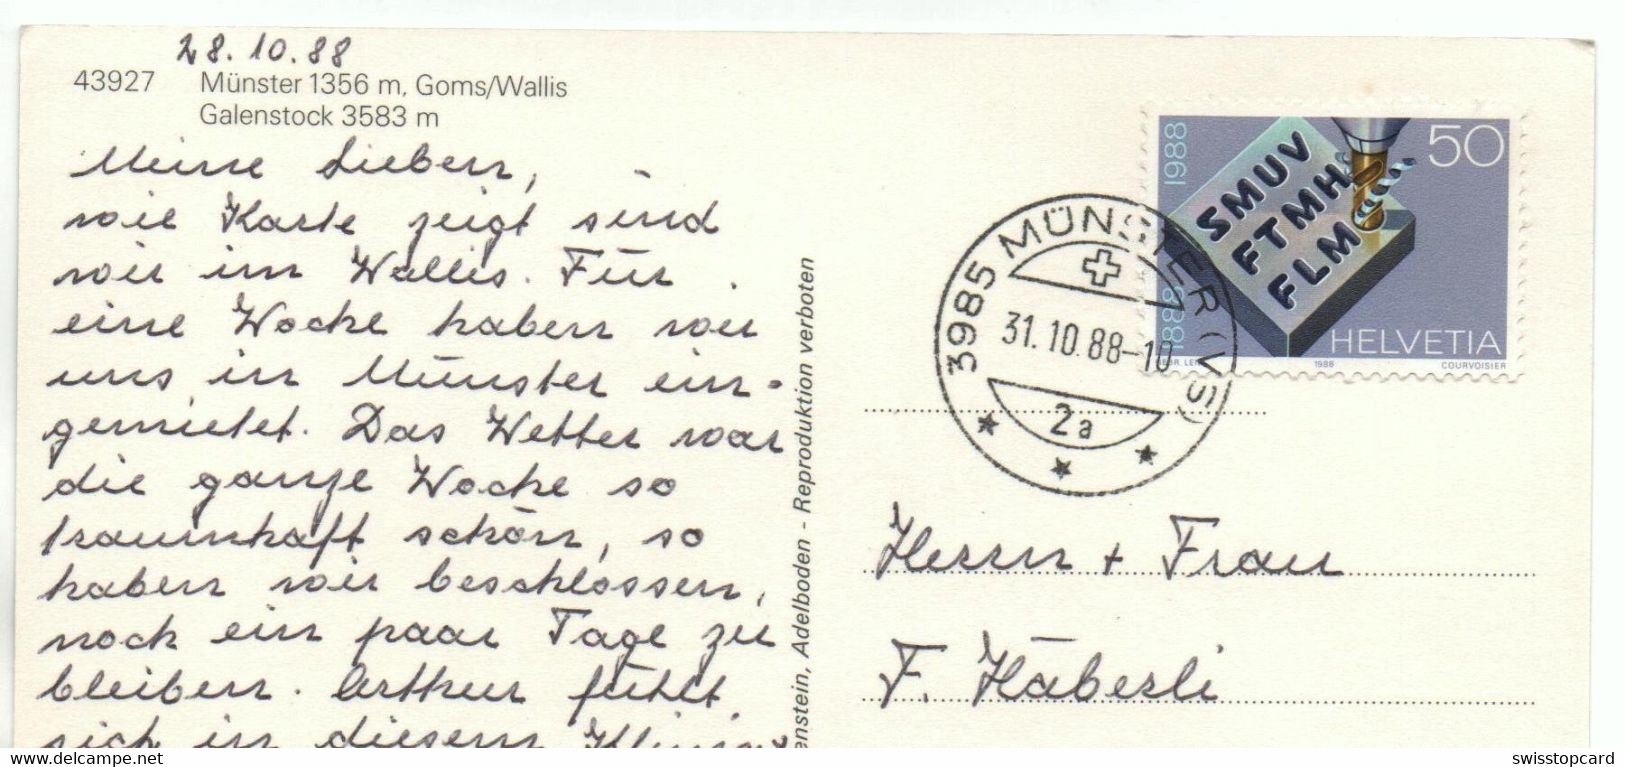 28.10.88
43927 Münster 1356 m, Goms/Wallis
Galenstock 3583 m
Meine Lieben,
wie Karte zeigt sind
wir im Wallis. Für
eine Woche haben wir
uns in Münster ein-
gemietet. Das Wetter war
die ganze Woche so
traumhaft schön, so
haben wir beschlossen,
noch ein paar Tage zu
bleiben. Arthur fühlt
sich in diesem
enstein, Adelboden - Reproduktion verboten
3985 MÜNSTER (VS)
31.10.88-10
2a
1988
1888
SMUV
FTMH
FLM
50
HELVETIA
1988
COURVOISIER
Herrn + Frau
F. Häberli
swisstopcard